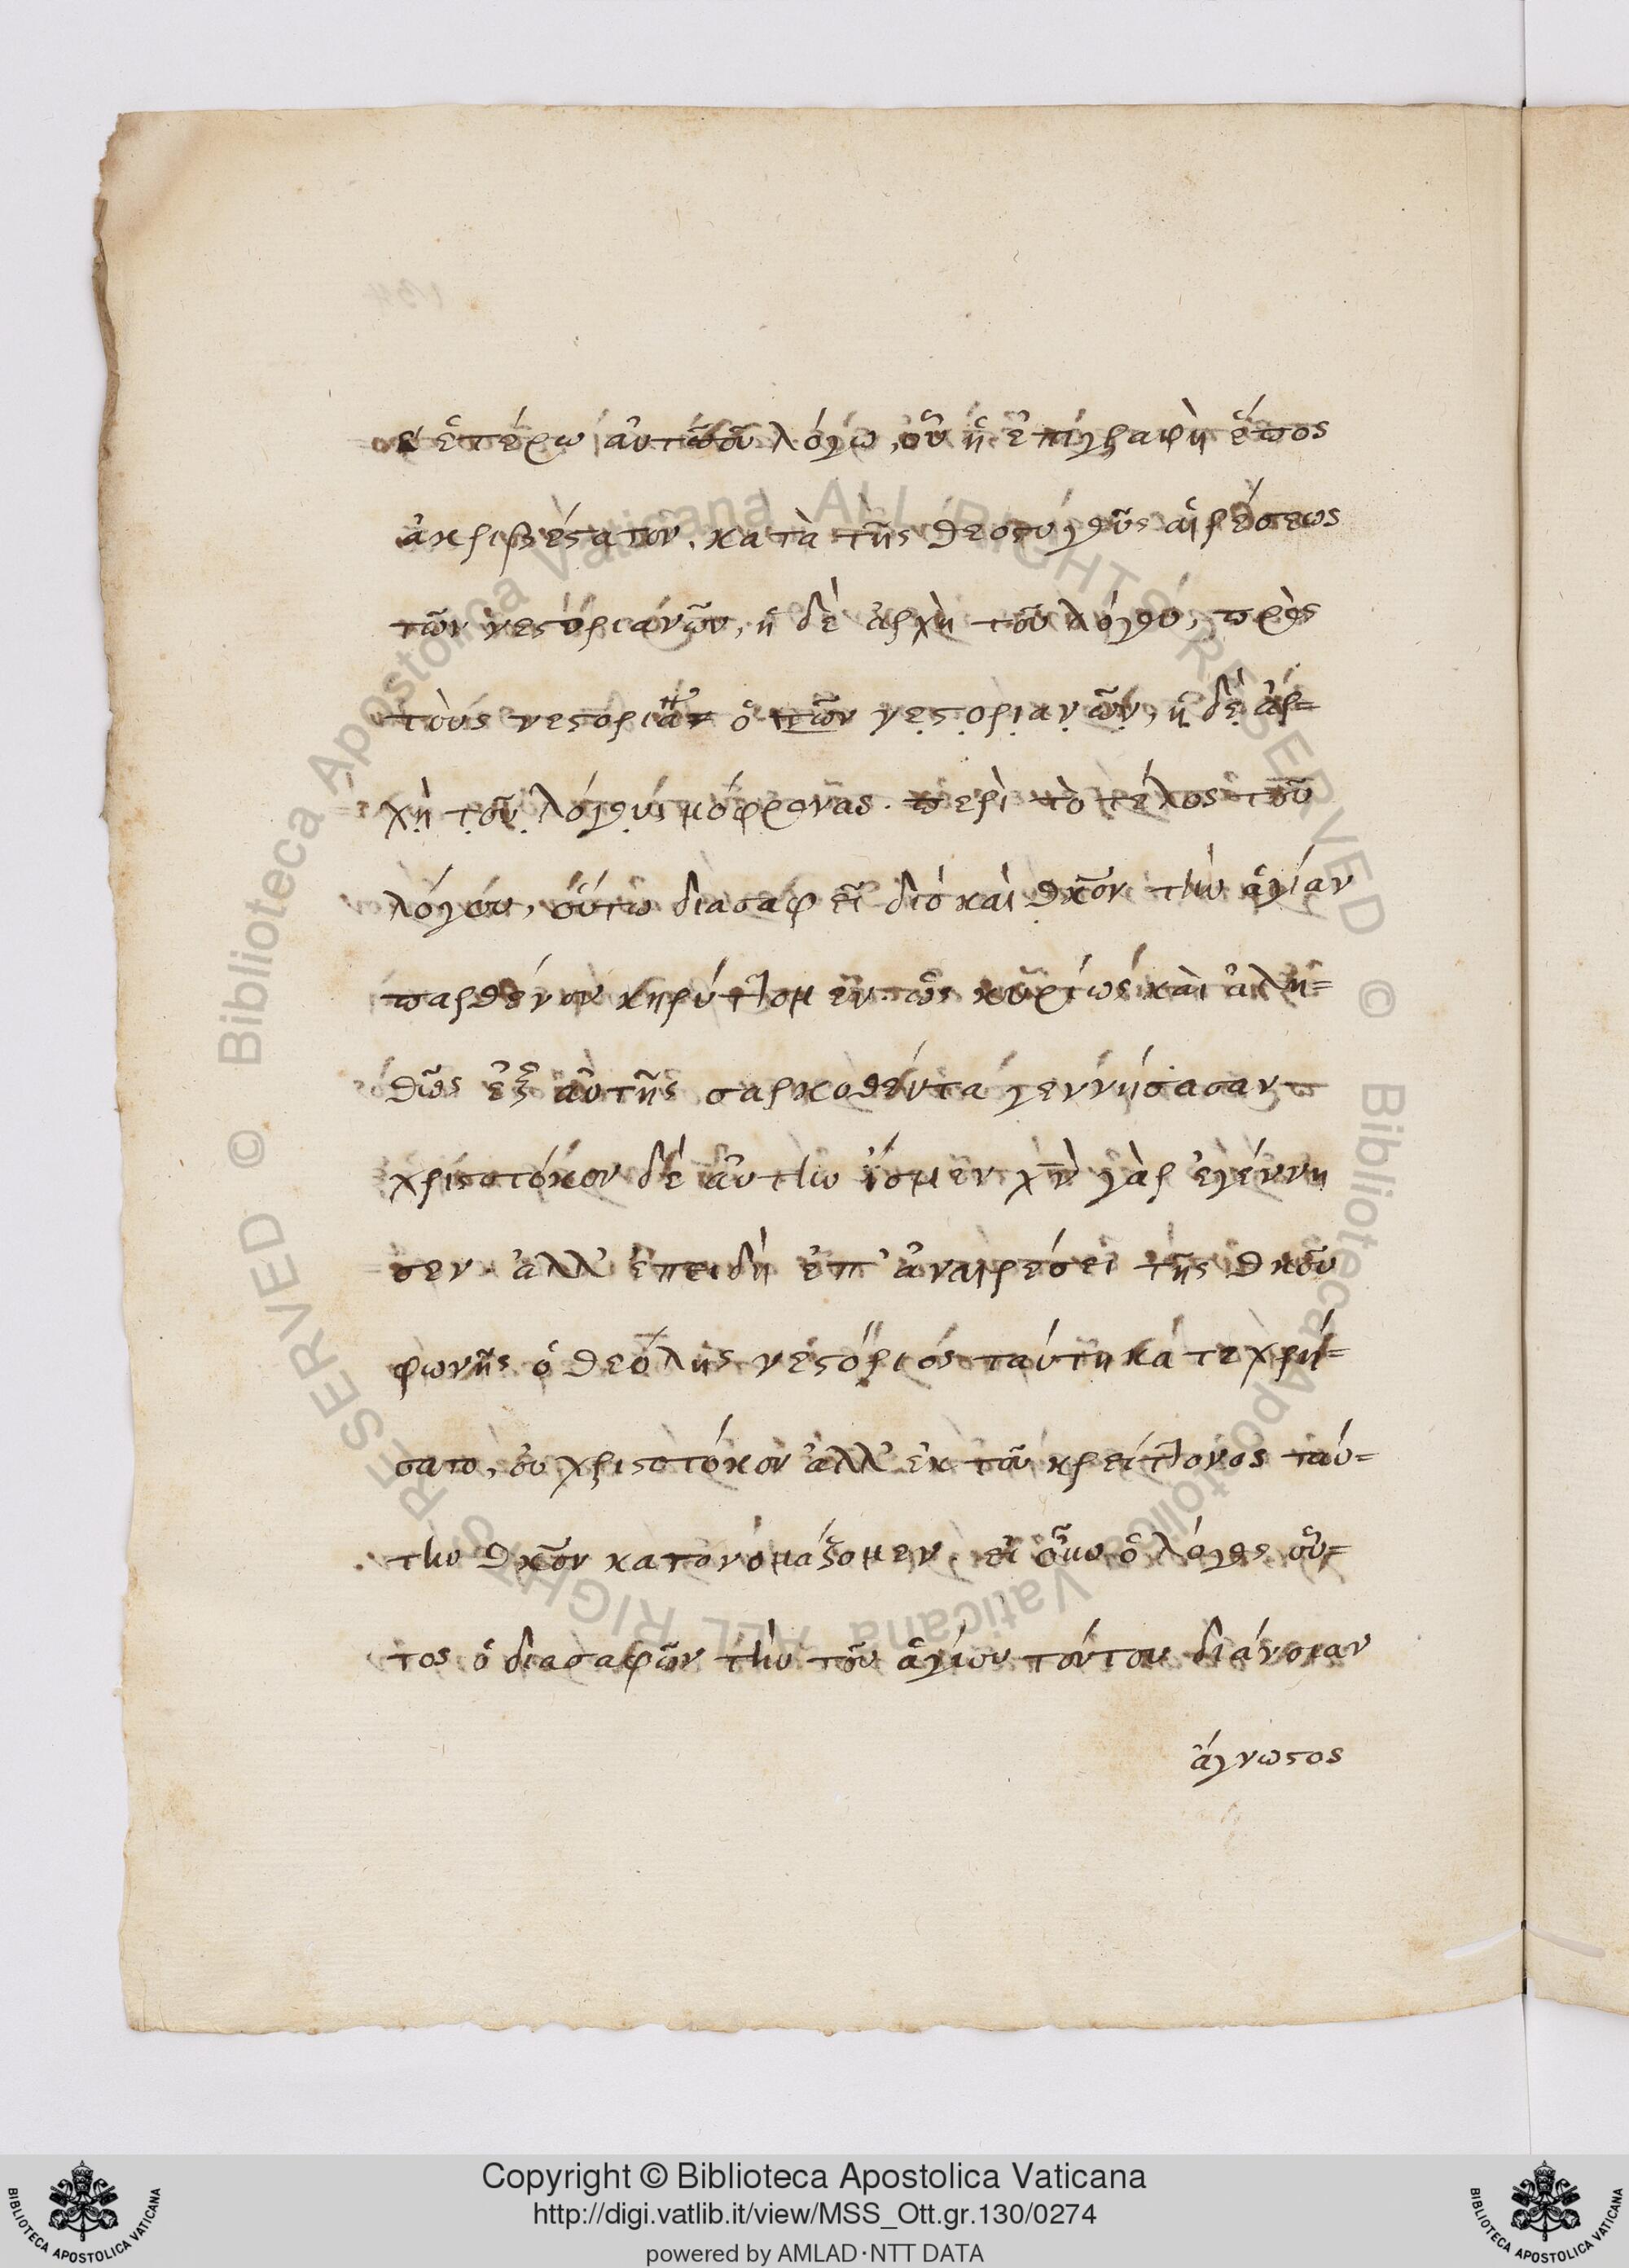 ἑτέρω αὐτοῦ λόγω, οὗ ἡ ἐπιγραφὴ ἔπος
ἀκριβέςατον. κατὰ τῆς θεοςυγοῦς αἱρέσεως
τῶν νεςοριανῶν, ἡ δὲ ἀρχὴ τοῦ λόγου, πρὸς
τοὺς νεςορια ὁ τῶν νεςοριανῶν, ἡ δὲ ἀρ=
χὴ τοῦ λόγου, μόφρονας. περὶ τὸ τέλος τοῦ
λόγου, οὕτω διασαφεῖ διό καὶ θκον τὴν ἁγίαν
παρθένον κηρύττομεν ὡς κυρίως καὶ ἀλη=
θῶς ἐξ αὐτῆς σαρκοθέντα γεννήσασαν
χριστοτόκον δὲ αὐτὴν ἴσμεν χν γὰρ ἐγέννη
σεν. ἀλλ' ἐπειδὴ ἐπ' ἀναιρέσει τῆς θκου
φωνῆς ὁ θεόλης νεςόριος ταύτη κατεχρή=
σατο, ου χριστοτόκον ἀλλ' ἐκ τοῦ κρείττονος ταύ=
την θκον κατονομάζομεν. εἰ οὖν ὁ λόγος οὗ=
τος ὁ διασαφῶν τὴν τοῦ ἁγίου τούτου διάνοιαν
άγνωςος
Copyright © Biblioteca Apostolica Vaticana
http://digi.vatlib.it/view/MSS_Ott.gr.130/0274
powered by AMLAD·NTT DATA
BIBLIOTECA APOSTOLICA VATICANA
BIBLIOTECA APOSTOLICA VATICANA
© Biblioteca Apostolica Vaticana ALL RIGHTS RESERVED
© Biblioteca Apostolica Vaticana ALL RIGHTS RESERVED